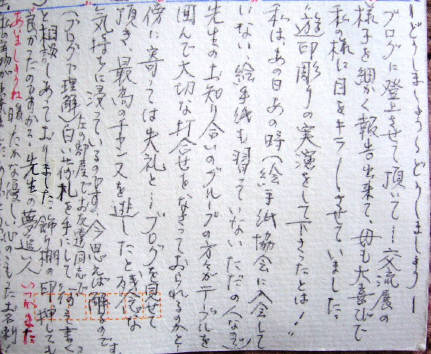 どうしましょう〜どうしましょう〜
ブログに登場させて頂いて…交流展の
様子を細かく報告出来て、母も大喜びで
私の様に目をキラキラさせていました。
遊印彫りの実演をして下さったとは!!
私は、あの日あの時(絵手紙協会に入会して
いない絵手紙も習っていないただの人なので)
先生のお知り合いのグループの方々がテーブルを
囲んで大切な打合せをなさっておられるのかと
傍に寄っては失礼と…ブログを見せて
頂き、最高のチャンスを逃したと残念な
気持ちに浸っているのです。今思えば
ブログで理解
白い荷札を手にして
と相談しあっておりました。飾り棚の印
良かったのですか?先生の夢追人